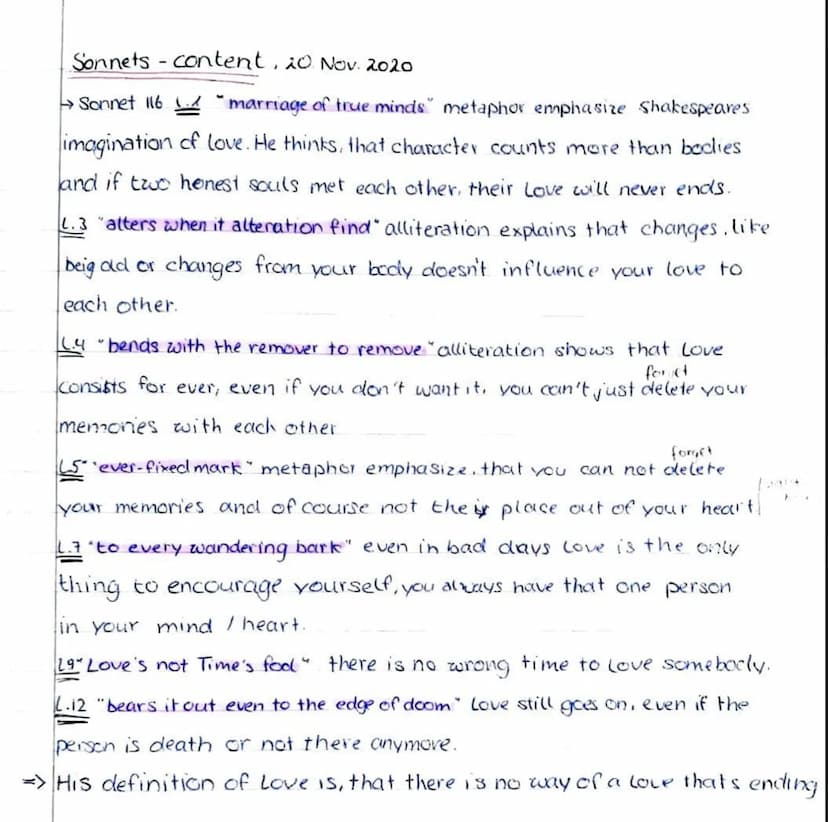 Sonnets - content, 20 Nov. 2020
→ Sonnet 116 L.1 "marriage of true minds" metaphor emphasize Shakespeares
imagination of love. He thinks, that character counts more than bodies
and if two honest souls met each other, their Love will never ends.
L.3 "alters when it alteration find" alliteration explains that changes, like
beig old or changes from your body doesn't influence your love to
each other.
L.4 "bends with the remover to remove" alliteration shows that Love
forget
consists for ever, even if you don't want it, you can't just delete your
memories with each other
forget
L5 "ever-fixed mark" metaphor emphasize, that you can not delete
your memories and of course not their place out of your heart
L.7 "to every wandering bark" even in bad days Love is the only
thing to encourage yourself, you always have that one person
in your mind / heart.
L9 "Love's not Time's fool" there is no wrong time to Love somebody.
L.12 "bears it out even to the edge of doom" Love still goes on, even if the
person is death or not there anymore.
=> His definition of Love is, that there is no way of a Love thats ending